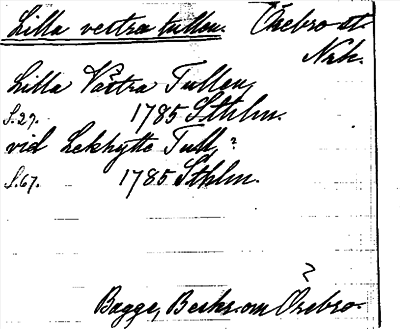 Lilla vestra tullen. Örebro st.
Nrk.
Lilla Västra Tullen,
S.29. 1785 Sthlm.
vid Lekhytte Tull,?
S.67. 1785 Sthlm.
?
Bagge, Beskr. om Örebro.